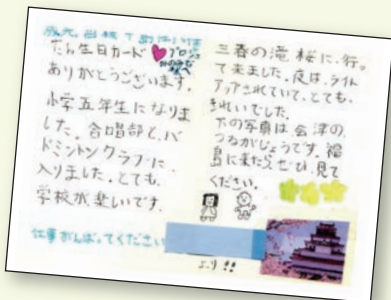 たん生日カード
ありがとうございます。
小学五年生になりま
した。合唱部と、バ
ドミントンクラブに、
入りました。とても、
学校が楽しいです。
仕事がんばってください
三春の滝桜に、行っ
て来ました。夜は、ライト
アップされていて、とても、
きれいでした。
下の写真は会津の
つるがじょうです。福
島に来たらぜひ、見て
ください。
より!!